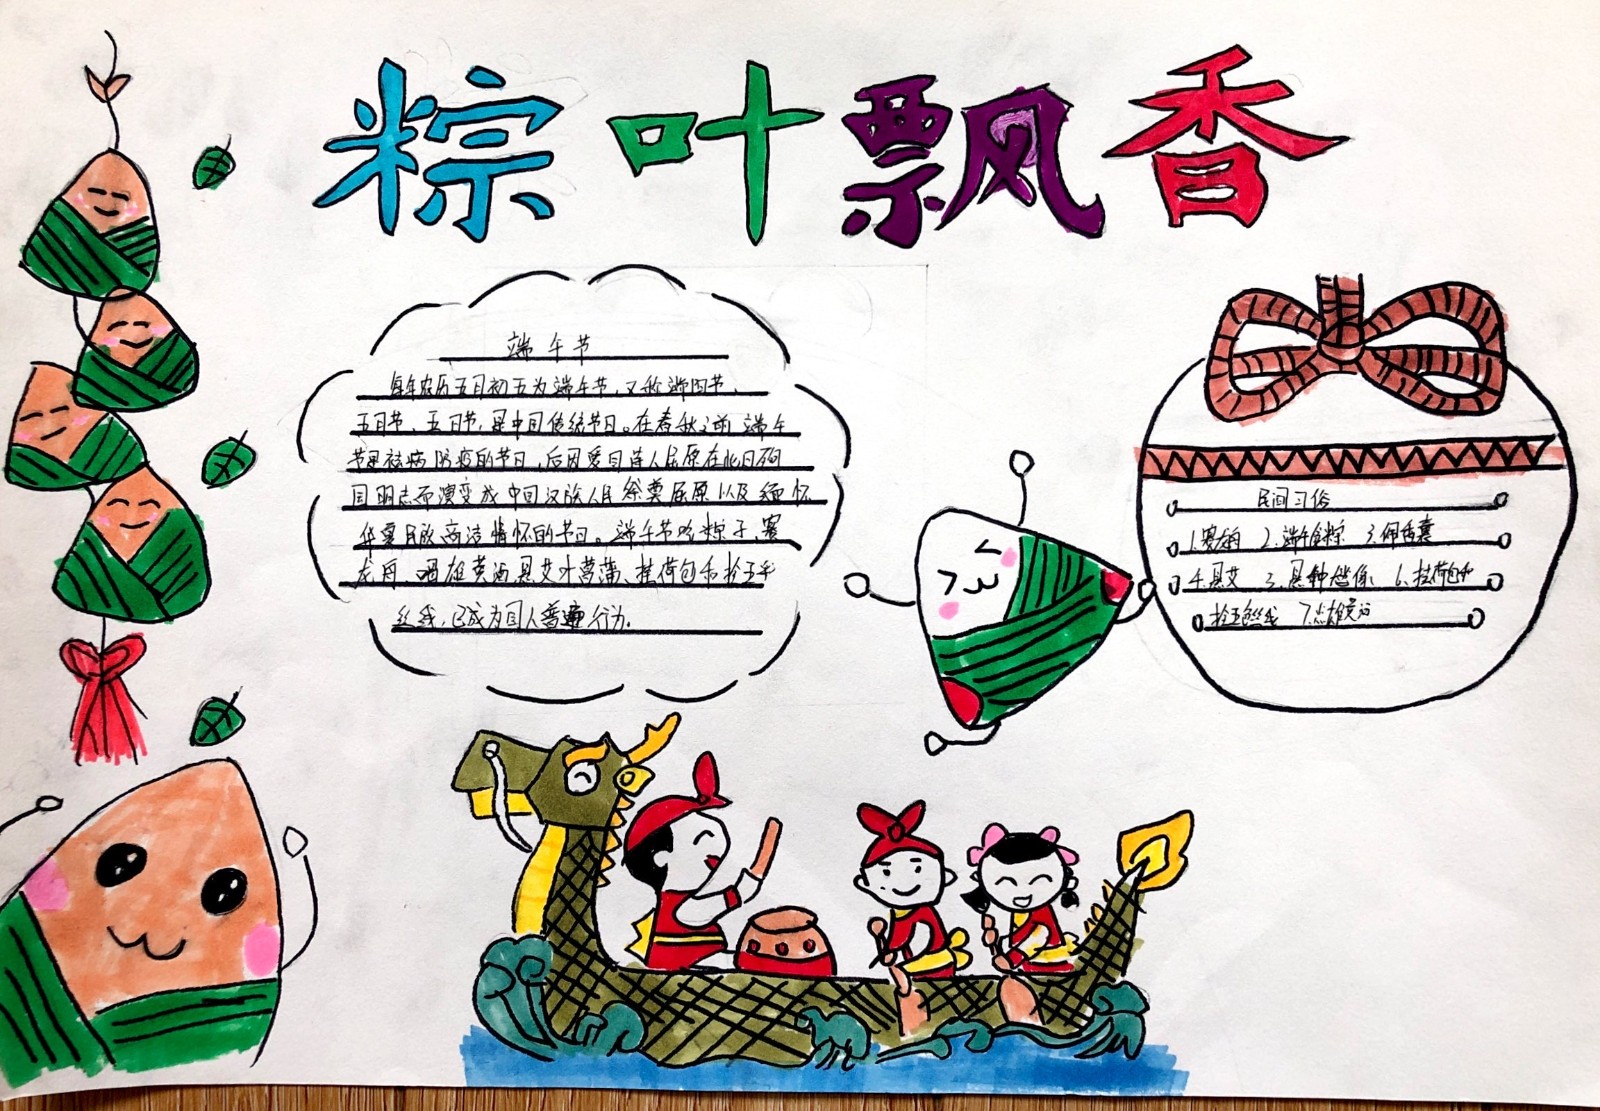 粽叶飘香
端午节
每年农历五月初五为端午节，又称端阳节、
五月节、五日节，是中国传统节日。在春秋之前端午
节是祛病防疫的节日，后因爱国诗人屈原在此日
国明志而演变成中国汉族人民祭奠屈原以及缅怀
华夏民族高洁情怀的节日。端午节吃粽子、赛
龙舟、喝雄黄酒、悬艾叶菖蒲、挂荷包和拴五色
丝线，已成为国人普遍行为。
民间习俗
1.赛龙舟 2.端午食粽 3.佩香囊
4.悬艾 5.悬钟馗像 6.挂荷包和
拴五色丝线 7.点雄黄酒